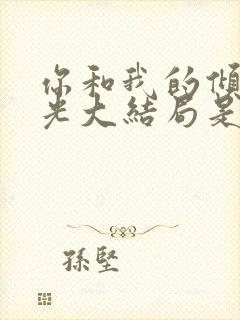 你和我的倾
光大結局是
孫堅